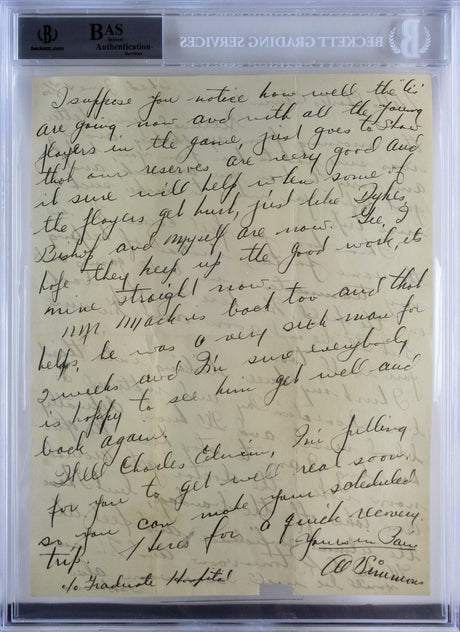 beckett.com
BAS
Beckett
Authentication
Services
BECKETT GRADING SERVICES
I suppose you notice how well the "A's"
are going now and with all the young
players in the game, just goes to show
that our reserves are very good and
it sure will help when some of
the players get hurt, just like Dykes
Bishop and myself are now. Gee, I
hope they keep up the good work, its
nine straight now.
Mr. Mack is back too and that
helps, he was a very sick man for
2 weeks and I'm sure everybody
is happy to see him get well and
back again.
Well Charles Edwin, I'm pulling
for you to get well real soon,
so you can make your scheduled
trip. Heres for a quick recovery.
Yours in Pain
Al Simmons
c/o Graduate Hospital